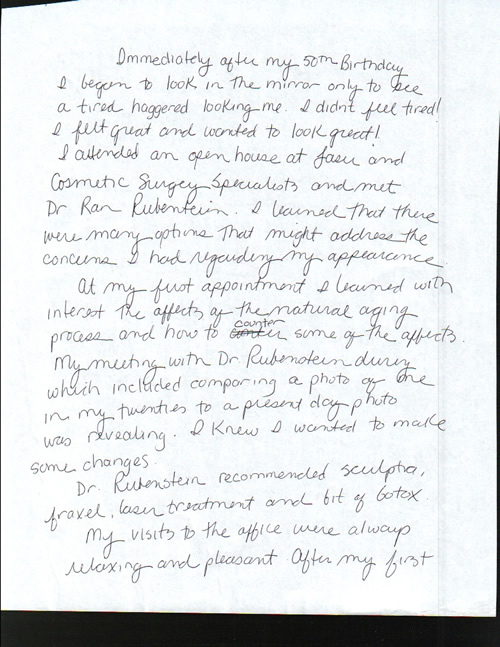 Immediately after my 50th Birthday
I began to look in the mirror only to see
a tired haggered looking me. I didn't feel tired!
I felt great and wanted to look great!
I attended an open house at Laser and
Cosmetic Surgey Specialists and met
Dr Ran Rubenstein. I learned that there
were many options that might address the
concerns I had regarding my appearance
At my first appointment I learned with
interest the affects of the natural aging
process and how to counter some of the affects.
My meeting with Dr Rubenstein during
which included comparing a photo of me
in my twenties to a present day photo
was revealing. I knew I wanted to make
some changes.
Dr. Rubenstein recommended sculptra,
fraxel, laser treatment and bit of botox.
My visits to the office were always
relaxing and pleasant. After my first